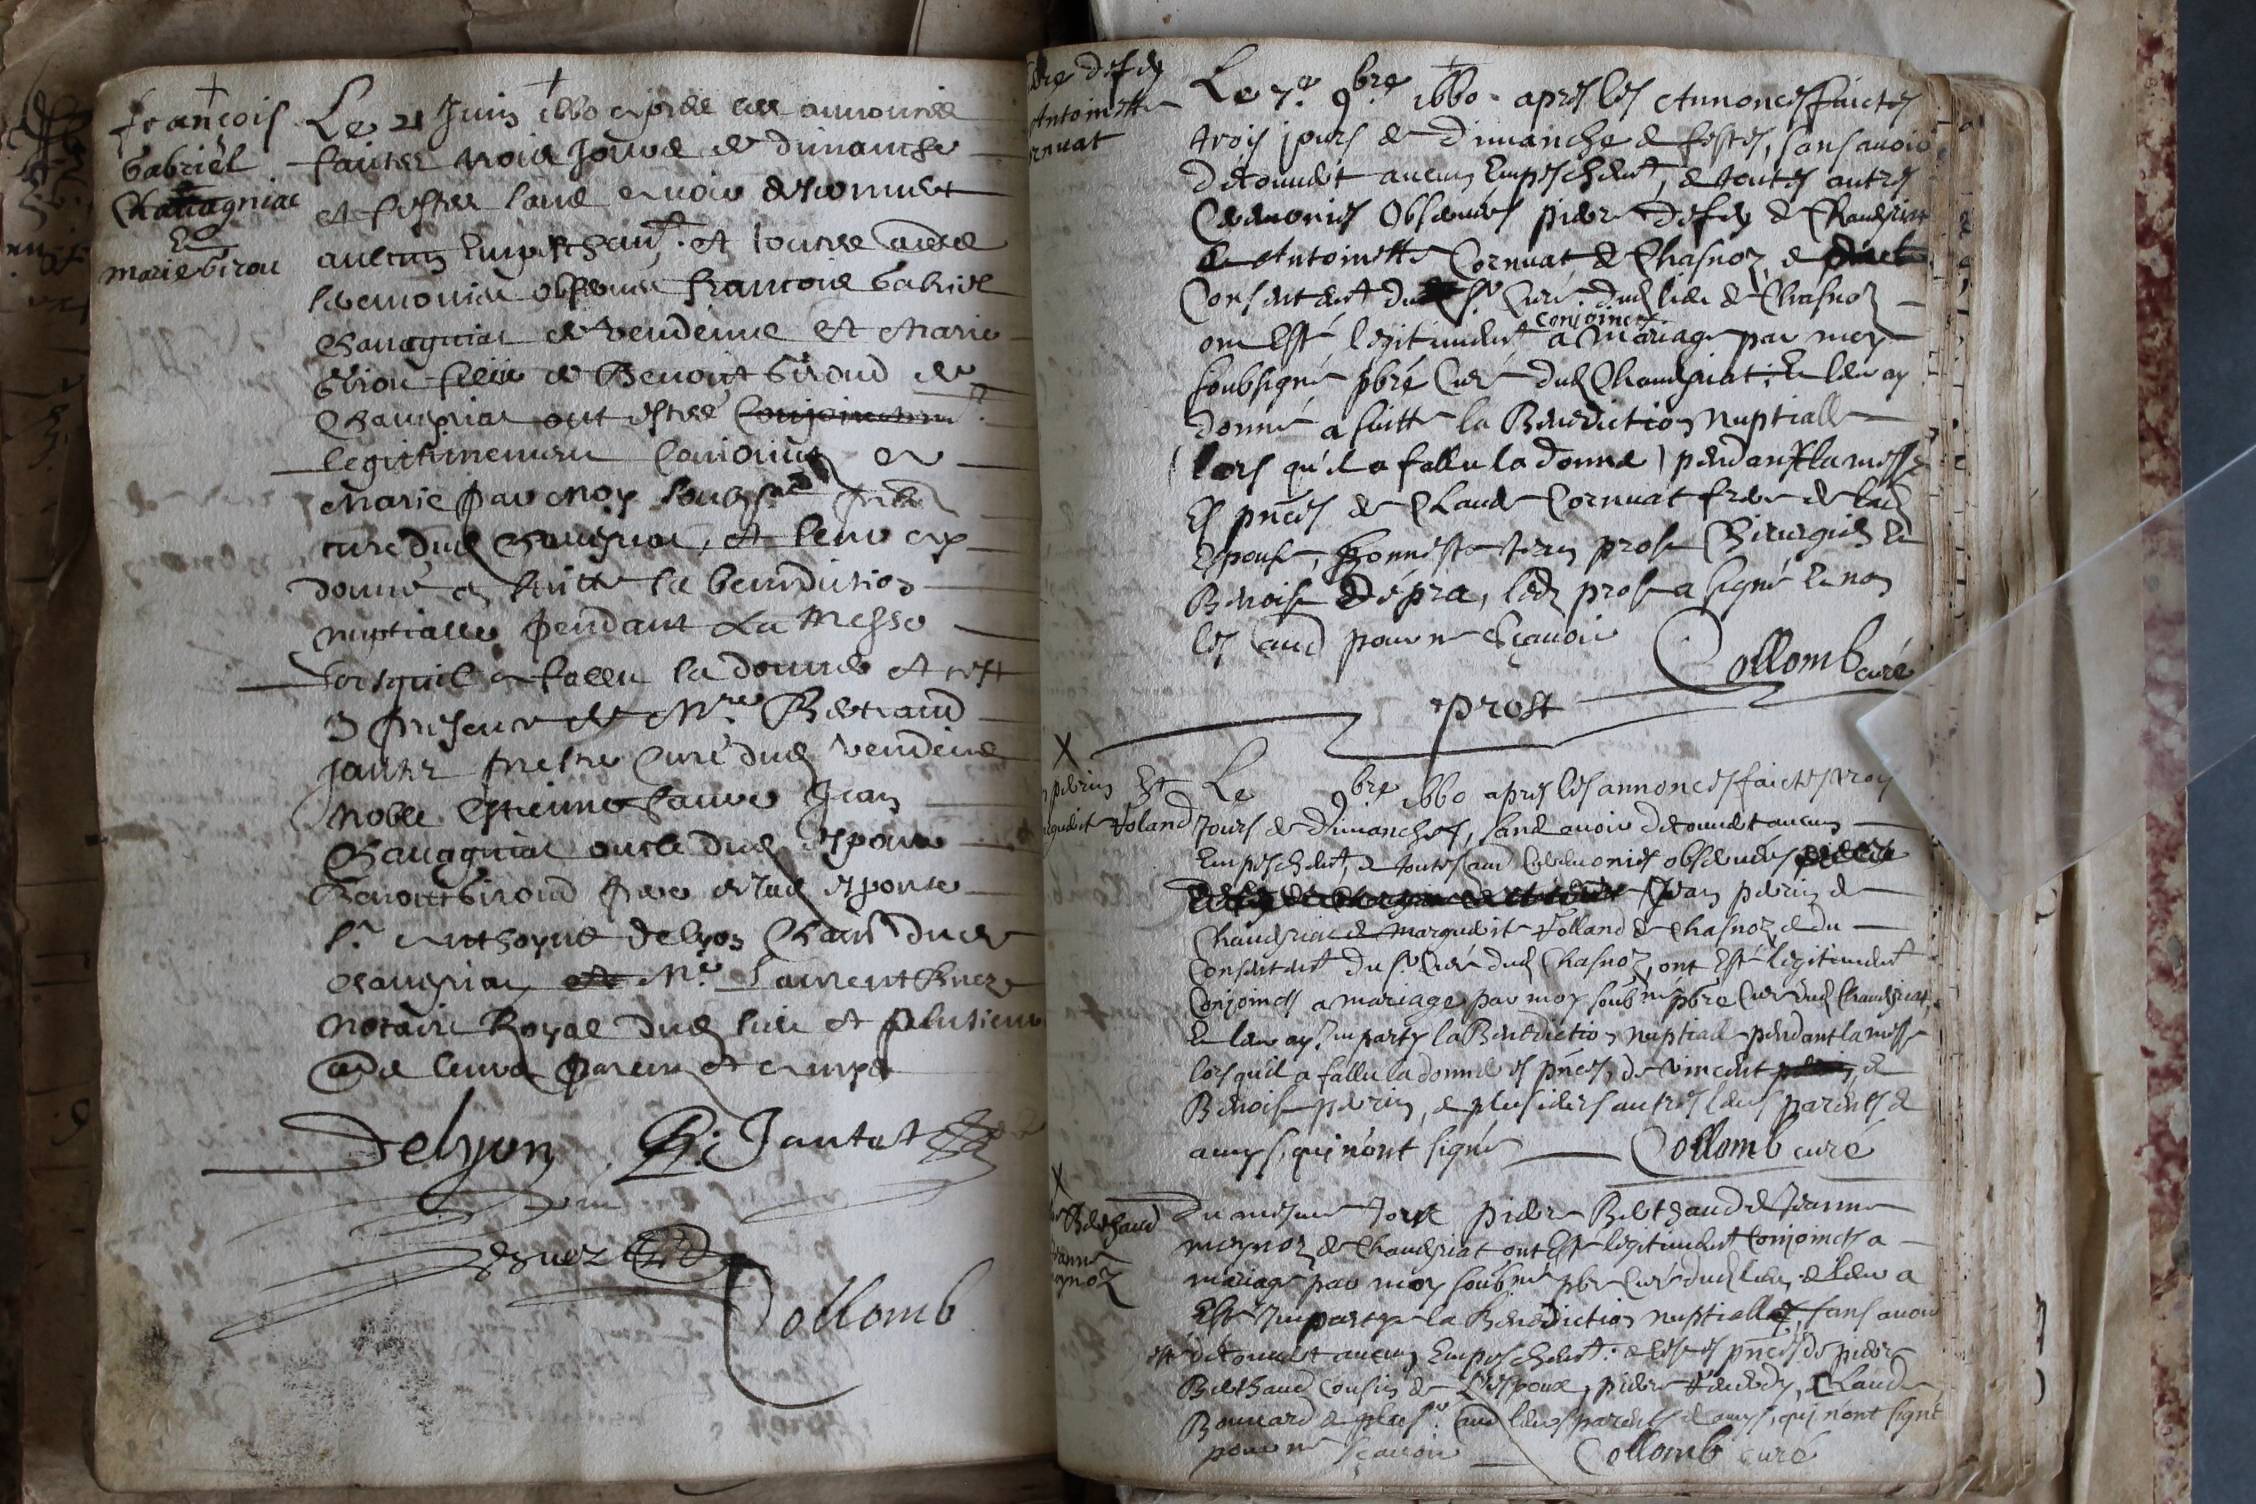 françois
Gabriel
Chavagniac
&
marie Girou
Le 21 Juin 1660 apres les annonces
faictes trois Jours de dimanche
et festes sans avoir descouvert
aulcun Empeschant. et toutes autres
seremonies observees francois Gabriel
Chavagniat de vendenne et Marie
Girou fille de Benoist Giroud de
Chaugriat ont estes
legitimement Conioincts en
Marie par moy soubsne
cure dud Chaugriat, et leur ay
donné en suitte la benediction
nuptialle pendant La Messe
lorsquil a fallu la donner et cest
en presence de Mre Bertrand
Jantet prestre Curé dud vendenne
Noble Estienne Jean
Chavagniat oncle dud Espoux
Benoist Giroud pere de lad Esponse
Sr Anthoyne delyon Chastn dud
Chaugriat Me Laurent
Notaire Royal dud lieu et plusieurs
autres leurs parens et amys
Delyon B. Jantet
Collomb
bre defey
Antoinette
rnuat
Le 7e 9bre 1660 apres les Annonces faictes
trois jours de dimanche & festes, sans avoir
découvert aucun Empeschent, & toutes autres
Ceremonies Observees pierre defey de Chaugriat
& Antoinette Cornuat de Chasnoz, &
Consentent du Sr Curé dud lieu de Chasnoz
conjoincts
ont Esté légitiment a Mariage par moy
soubsigné pbré Curé dud Chaugriat, & leur ay
donné a suitte la Benediction Nuptialle
(lors qu'il a fallu la donner) pendant la messe
Es pnces de Claude Cornuat frere de lad
Espouse, honneste Jean prost Chirurgien &
Benoist Dépra, led prost a signé & non
les autres pour ne sçavoir
Collomb curé
prost
X
perrin Et
guerite Roland
Le 9bre 1660 apres les annonces faictes trois
Jours de dimanches, sans avoir découvert aucun
Empeschent, & toutes autres Ceremonies observees
Jean perrin de
Chaugriat & Marguerite Rolland de Chasnoz, & du
Consentent du Sr Curé dud Chasnoz, ont Esté légitiment
Conjoincts a mariage par moy soubsne pbre Curé dud Chaugriat,
& leur ay Imparty la Benediction nuptiale pendant la messe
lorsquil a fallu la donner es pnces, de vincent &
Benoist perrin, & plusieurs autres leurs parents &
amys, qui n'ont signé Collomb curé
X
Berthaud
Jeanne
gnoz
Du mesme Jour pierre Berthaud & Jeanne
meynoz de Chaugriat ont Esté légitiment Conjoincts a
mariage par moy soubsné pbre Curé dud lieu, & leur a
Esté Imparty la Benediction nuptialle, sans avoir
esté découvert aucun Empeschent. & es pnces de pierre
Berthaud Cousin de L'espoux, pierre Claude
Bonnard & plusrs autres leurs parents & amys, qui n'ont signé
pour ne sçavoir Collomb curé